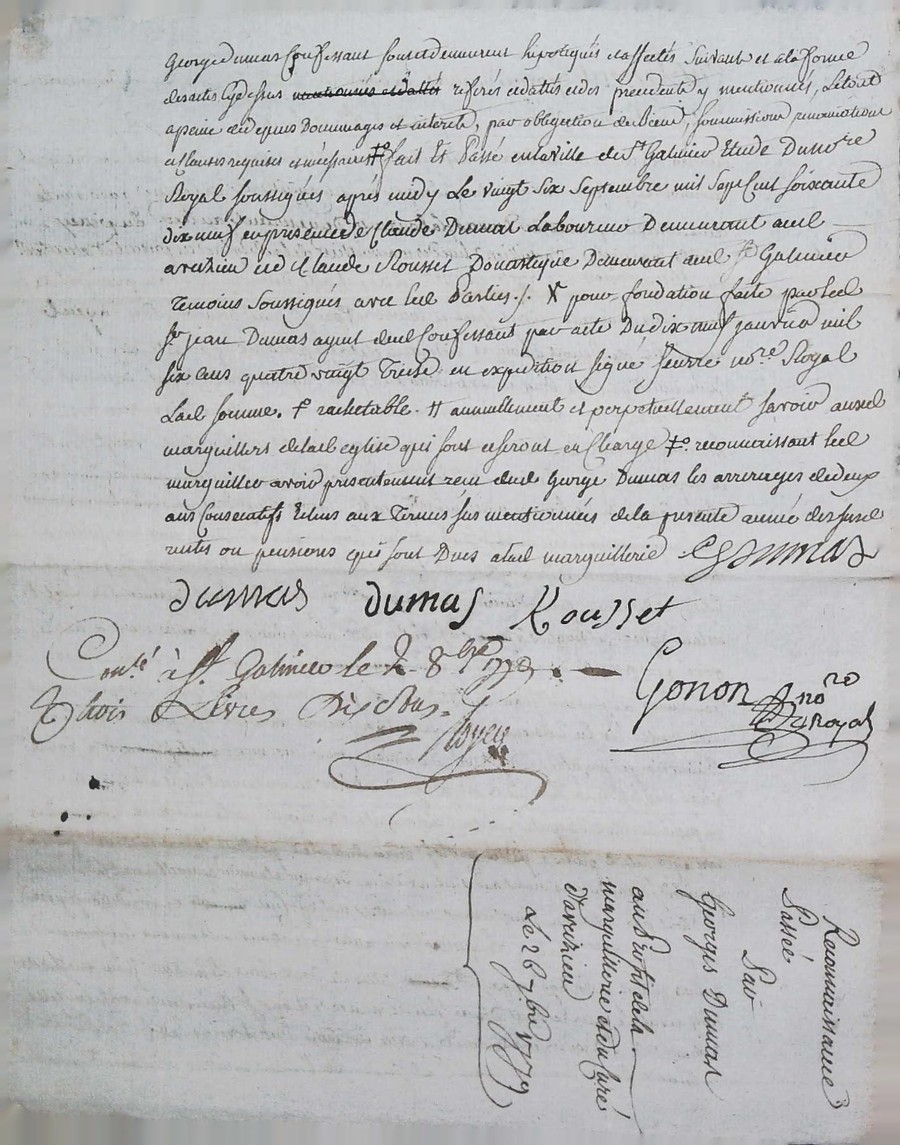 George dumas Confessant sont et demeurent hipotiqués et affectés Suivant et a la forme
des actes Cy dessus mentionnés et dattés referés et dattés et des precedents y mentionnés, Le tout
a peine de depens Dommages et interets, par obligation de Biens, soummissions renonciations
et Clauses requises et necessaires ‡o fait Et Passé en la ville de St Galmier Etude Du no.re
Royal soussignés après midy Le vingt six Septembre mil Sept Cent soixante
dix neuf en presence de Claude Dumas Laboureur Demeurant aud.
avezieu et de Claude Rousset Domestique Demeurant aud. St Galmier
Temoins Soussignés avec lesd. Parties./. X pour fondation faite par led
Sr jean Dumas ayeul dud Confessant par acte Du dix neuf janvier mil
six Cens quatre vingt Treize en expedition signé seurre no.re Royal
Lad somme. f rachetable. tt annuellement et perpetuellement savoir auxd
marguilliers de lad eglise qui sont et seront en Charge ‡o. reconnaissant led
marguillier avoir presentement recu dud George Dumas les arrerages de deux
ans Consecutifs Echus aux Termes sus mentionnés de la presente année des susd
rentes ou pensions qui sont Dues a lad marguillerie G Dumas
dumas dumas Rousset
Conté à St Galmier le 2 8bre 1779.
Gonon no.re Royal
Trois Livres Dix sous.
Reconnaissance
Passée
Par
Georges Dumas
au Profit de la
marguillerie et du Curé
d'avezieu
Le 26 7bre 1779